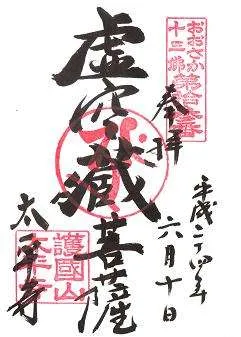 おおさか
十三佛第拾三番
奉拝
平成二十四年
六月十日
虚空蔵菩薩
太平寺
護國山
太平寺